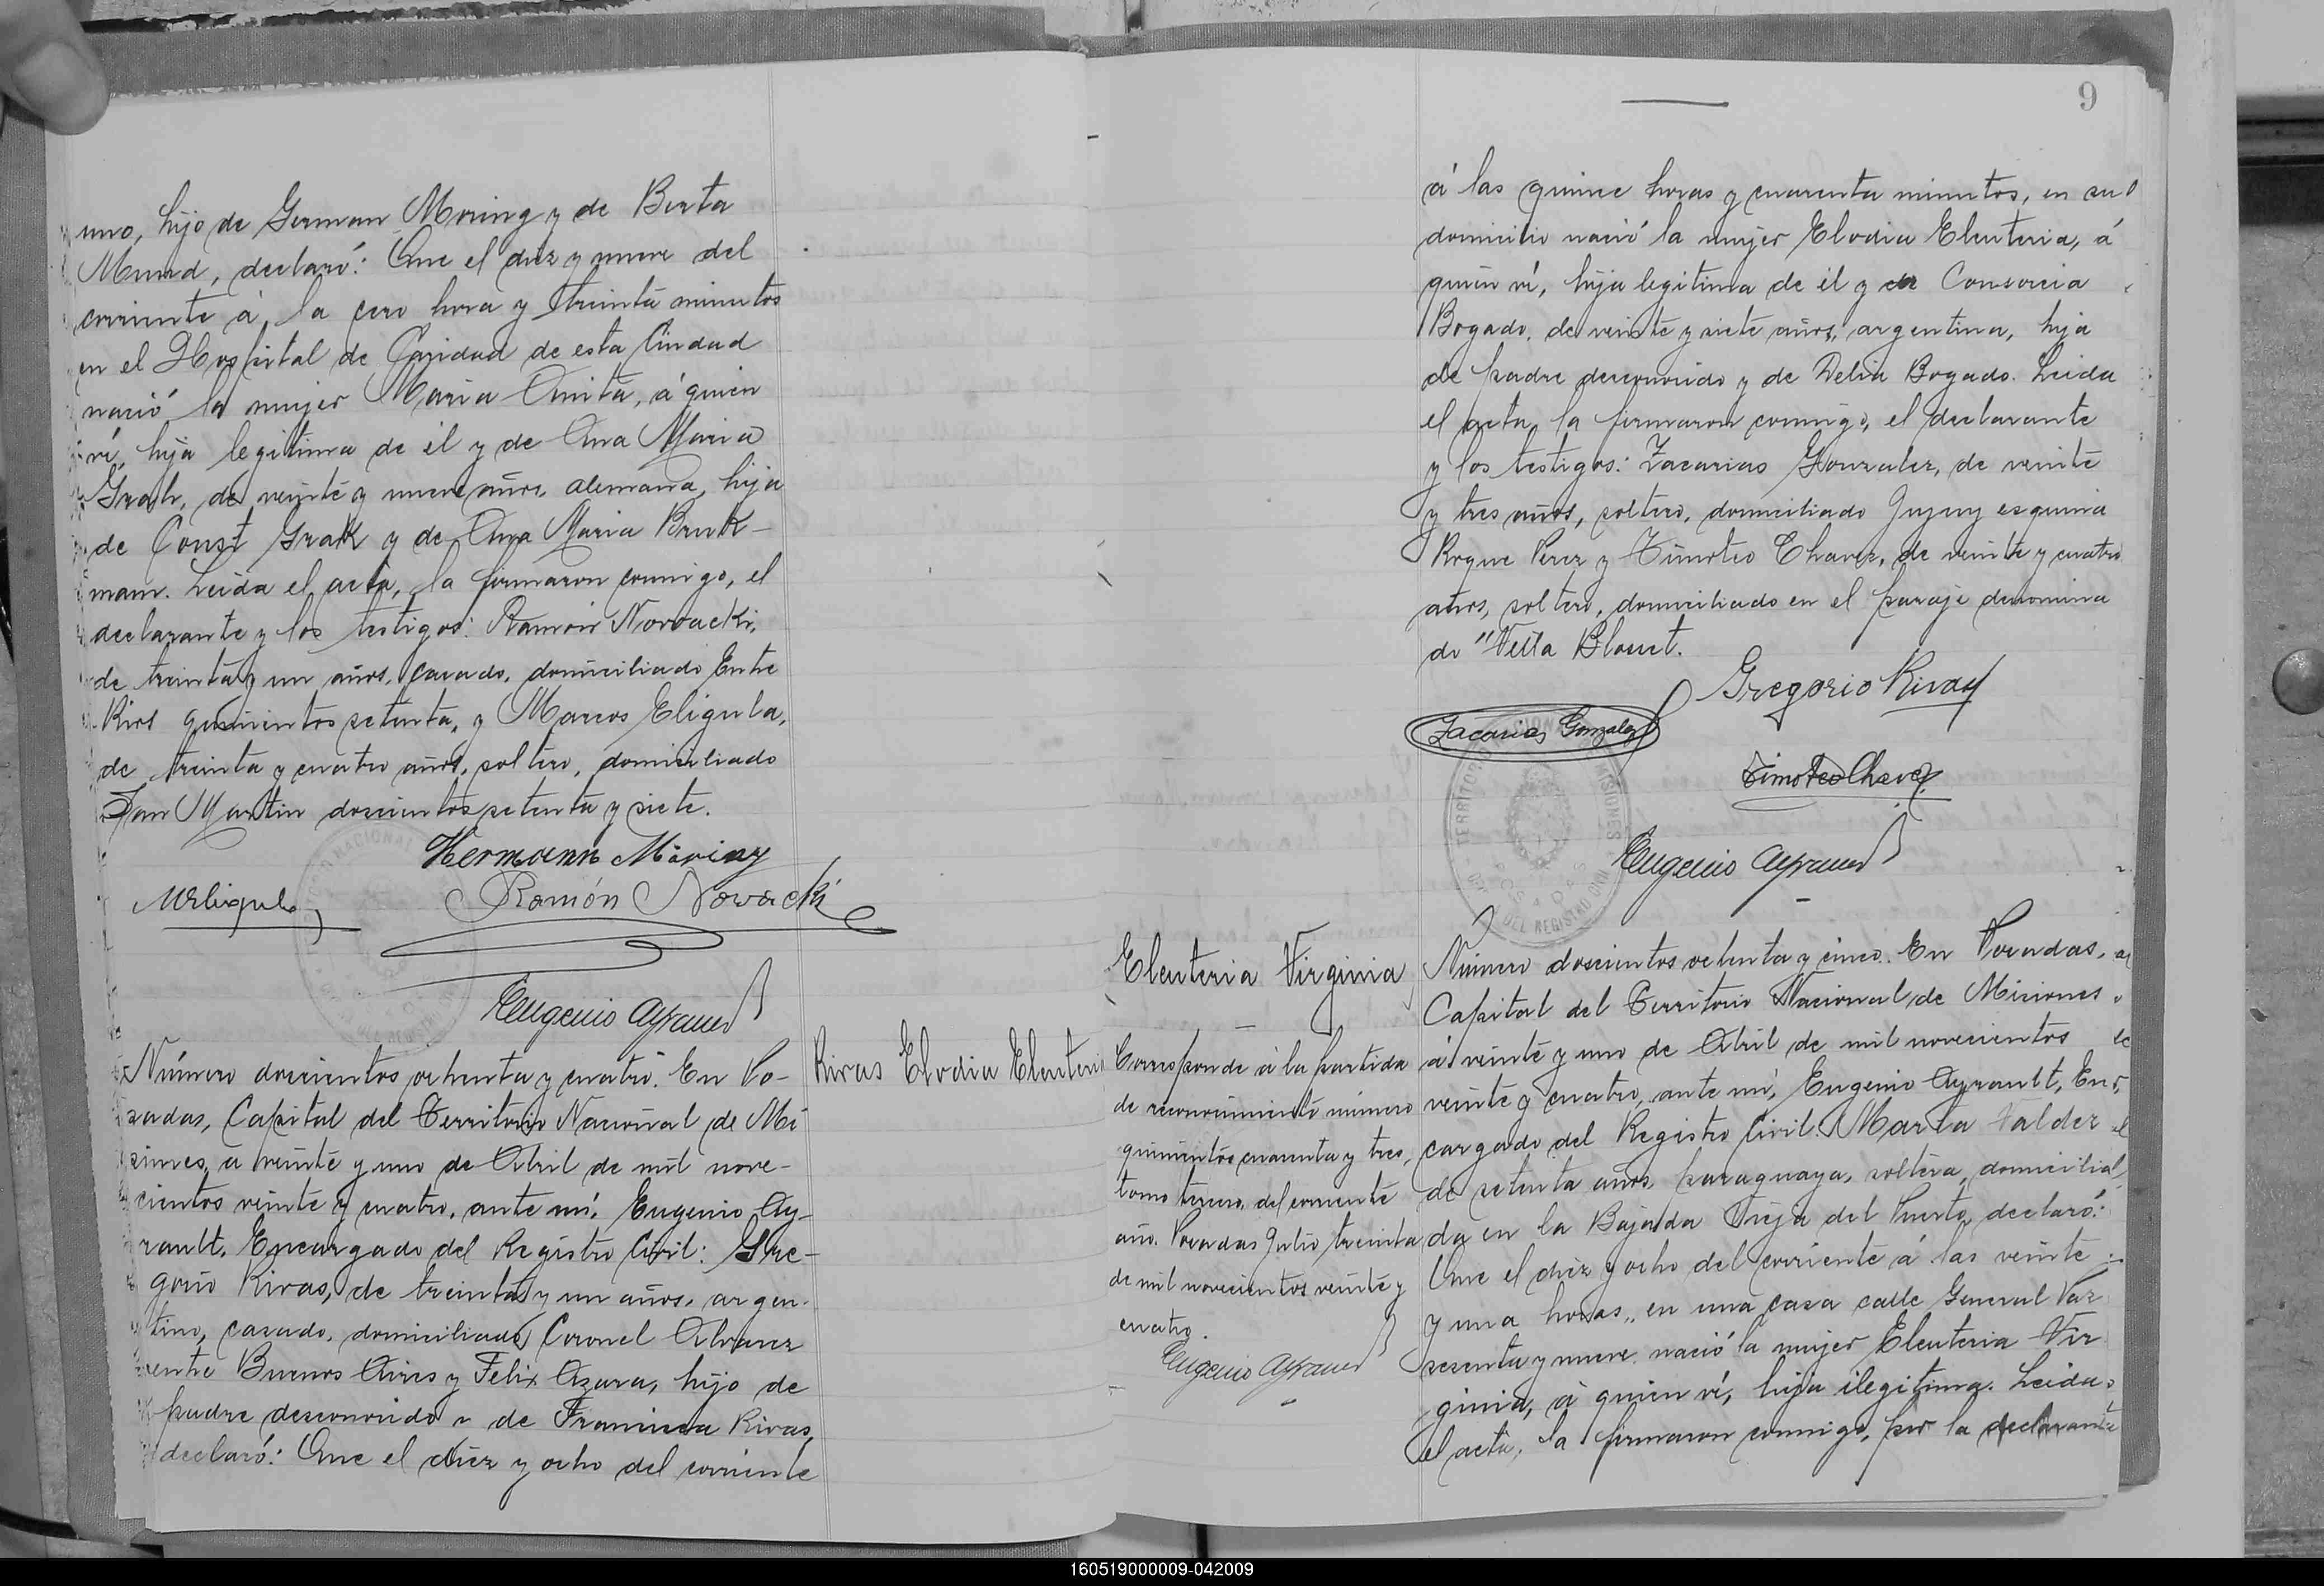 uno, hijo de German Moring y de Berta
Mund, declaró: Que el diez y nueve del
corriente á la cero hora y treinta minutos
en el Hospital de Caridad de esta Ciudad
nació la mujer Maria Anita, á quien
ví, hija legitima de él y de Ana Maria
Grah, de veinte y nueve años, alemana, hija
de Const Grak y de Ana Maria Bruk-
mam. Leida el acta, la firmaron conmigo, el
declarante y los testigos: Ramón Novacki,
de treinta y un años, casado, domiciliado Entre
Rios quinientos setenta, y Marcos Eligula,
de treinta y cuatro años, soltero, domiciliado
San Martin doscientos setenta y siete.
Hermann Möring
Ramón Nowacki
Eugenio Ayrault
Número doscientos ochenta y cuatro. En Po-
sadas, Capital del Territorio Nacional de Mi
siones, a veinte y uno de Abril de mil nove-
cientos veinte y cuatro, ante mí, Eugenio Ay-
rault, Encargado del Registro Civil: Gre-
gorio Rivas, de treinta y un años, argen-
tino, casado, domiciliado Coronel Alvarez
entre Buenos Aires y Felix Azara, hijo de
padre desconocido y de Francisca Rivas,
declaró: Que el diez y ocho del corriente
Rivas Elodia Eleuteria
9
á las quince horas y cuarenta minutos, en su
domicilio nació la mujer Elodia Eleuteria, á
quien ví, hija legitima de él y de Consorcia
Bogado, de veinte y siete años, argentina, hija
de padre desconocido y de Delia Bogado. Leida
el acta, la firmaron conmigo, el declarante
y los testigos: Zacarias Gonzalez, de veinte
y tres años, soltero, domiciliado Jujuy esquina
Roque Perez y Timoteo Chavez, de veinte y cuatro
años, soltero, domiciliado en el paraje denomina
do "Villa Blosset.
Gregorio Rivas
Zacarias Gonzalez
Timoteo Chavez
Eugenio Ayrault
Eleuteria Virginia
Corresponde á la partida
de reconocimiento número
quinientos cuarenta y tres,
tomo tercero, del corriente
año. Posadas Julio treinta
de mil novecientos veinte y
cuatro.
Eugenio Ayrault
Número doscientos ochenta y cinco. En Posadas,
Capital del Territorio Nacional de Misiones
á veinte y uno de Abril de mil novecientos
veinte y cuatro, ante mí, Eugenio Ayrault, En-
cargado del Registro Civil: Marta Valdez
de setenta años, paraguaya, soltera, domicilia
da en la Bajada Vieja del Puerto, declaró:
Que el diez y ocho del corriente á las veinte
y una horas, en una casa calle General Paz
sesenta y nueve, nació la mujer Eleuteria Vir
ginia, á quien ví, hija ilegitima. Leida
el acta, la firmaron conmigo, por la declarante
160519000009-042009